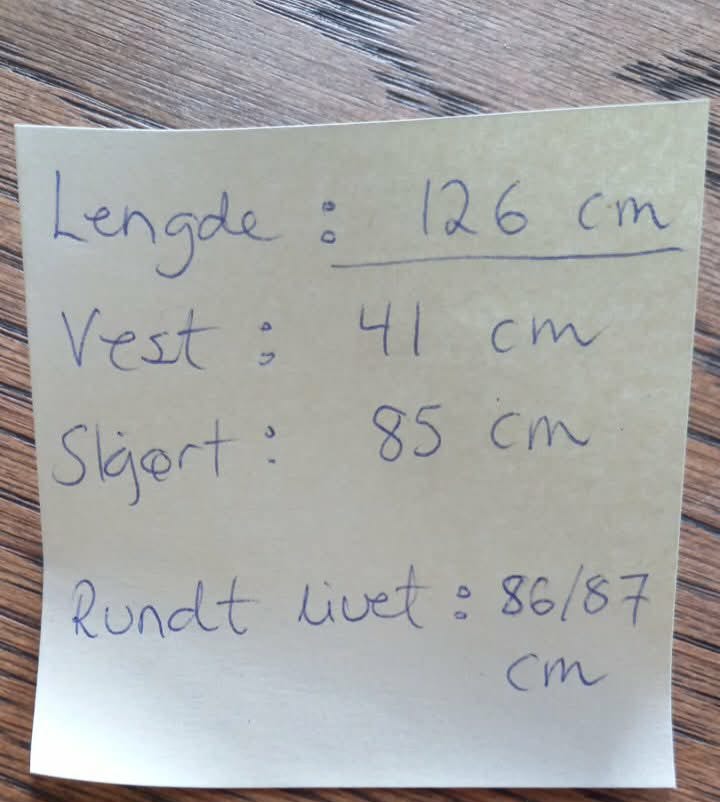 Lengde: 126 cm
Vest: 41 cm
Skjørt: 85 cm
Rundt livet: 86/87
cm